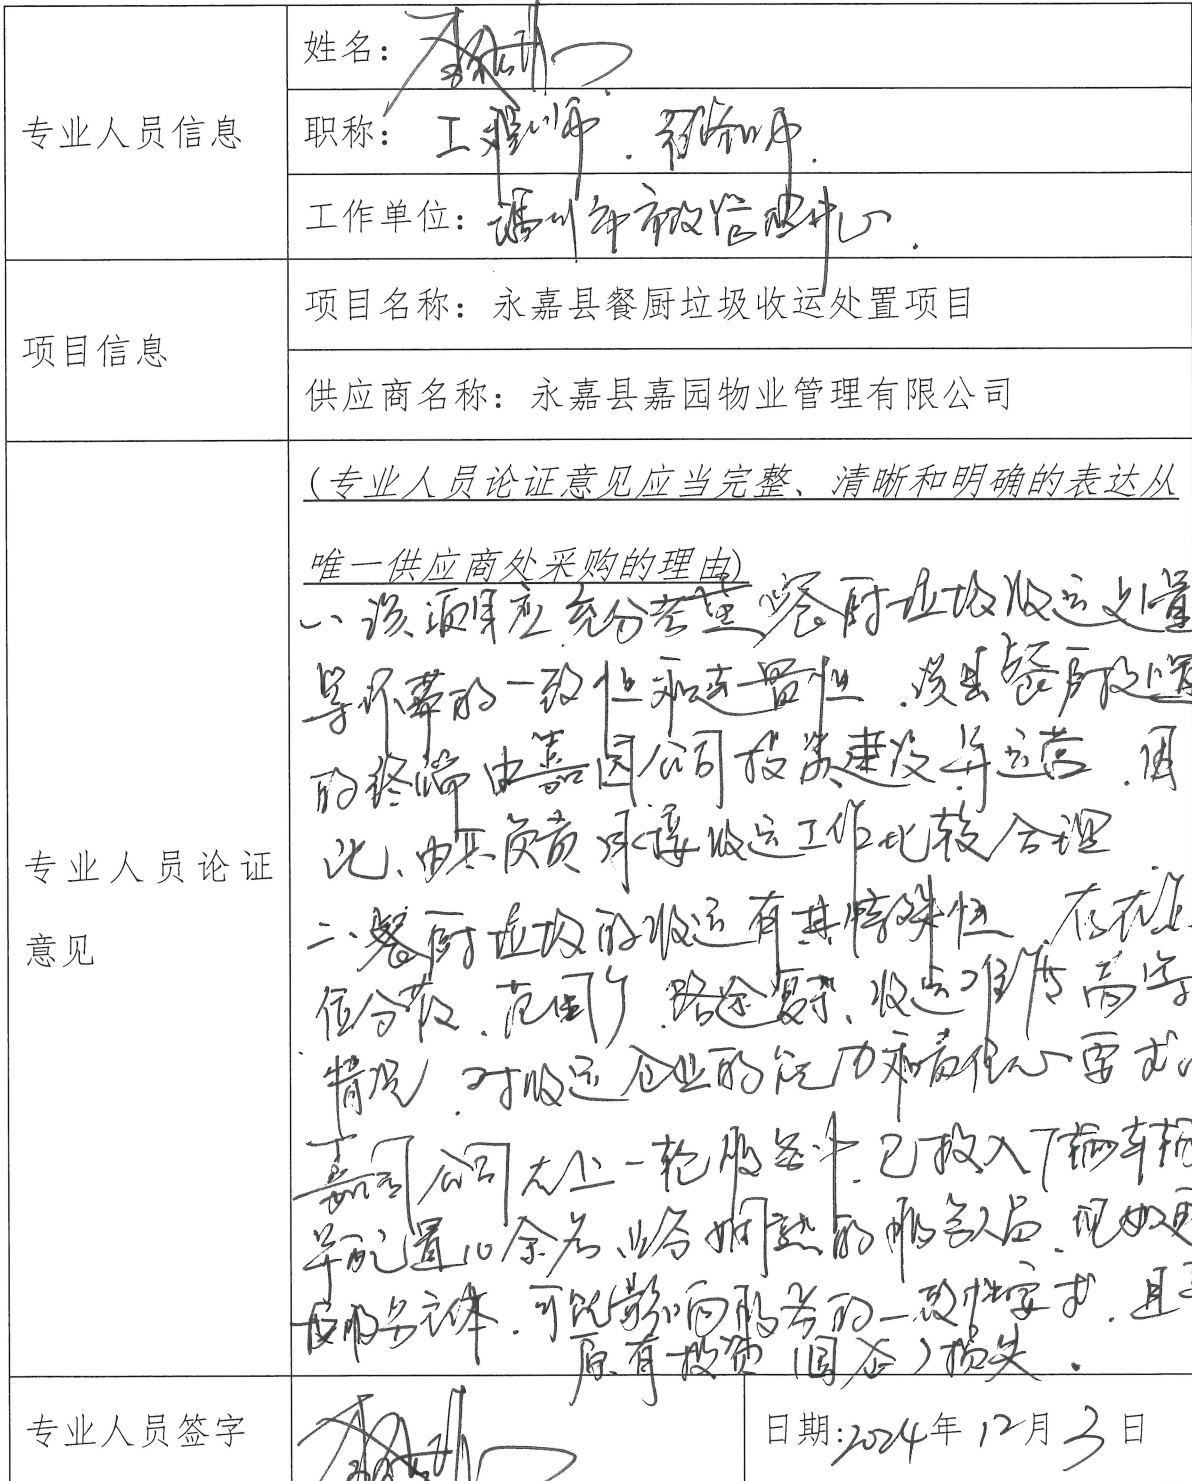 专业人员信息
姓名：
职称：工程师．
工作单位：温州市市政管理中心．
项目信息
项目名称：永嘉县餐厨垃圾收运处置项目
供应商名称：永嘉县嘉园物业管理有限公司
专业人员论证
意见
（专业人员论证意见应当完整、清晰和明确的表达从
唯一供应商处采购的理由）
一、该项目应充分考虑餐厨垃圾收运处置
等环节的一致性和连贯性．该县餐厨
的终端由嘉园公司投资建设并运营．因
此、由其负责承接收运工作比较合理．
二、餐厨垃圾的收运有其特殊性 存在
位分散、范围广、路途复杂、收运难度高等
情况．对收运企业的能力和责任心要求
嘉园公司在上一轮服务中．已投入7辆车辆
并配置10余名业务娴熟的服务人员．现如更
服务主体．可能影响服务的一致性要求．且
原有投资（固态）损失．
专业人员签字
日期：2024年12月3日